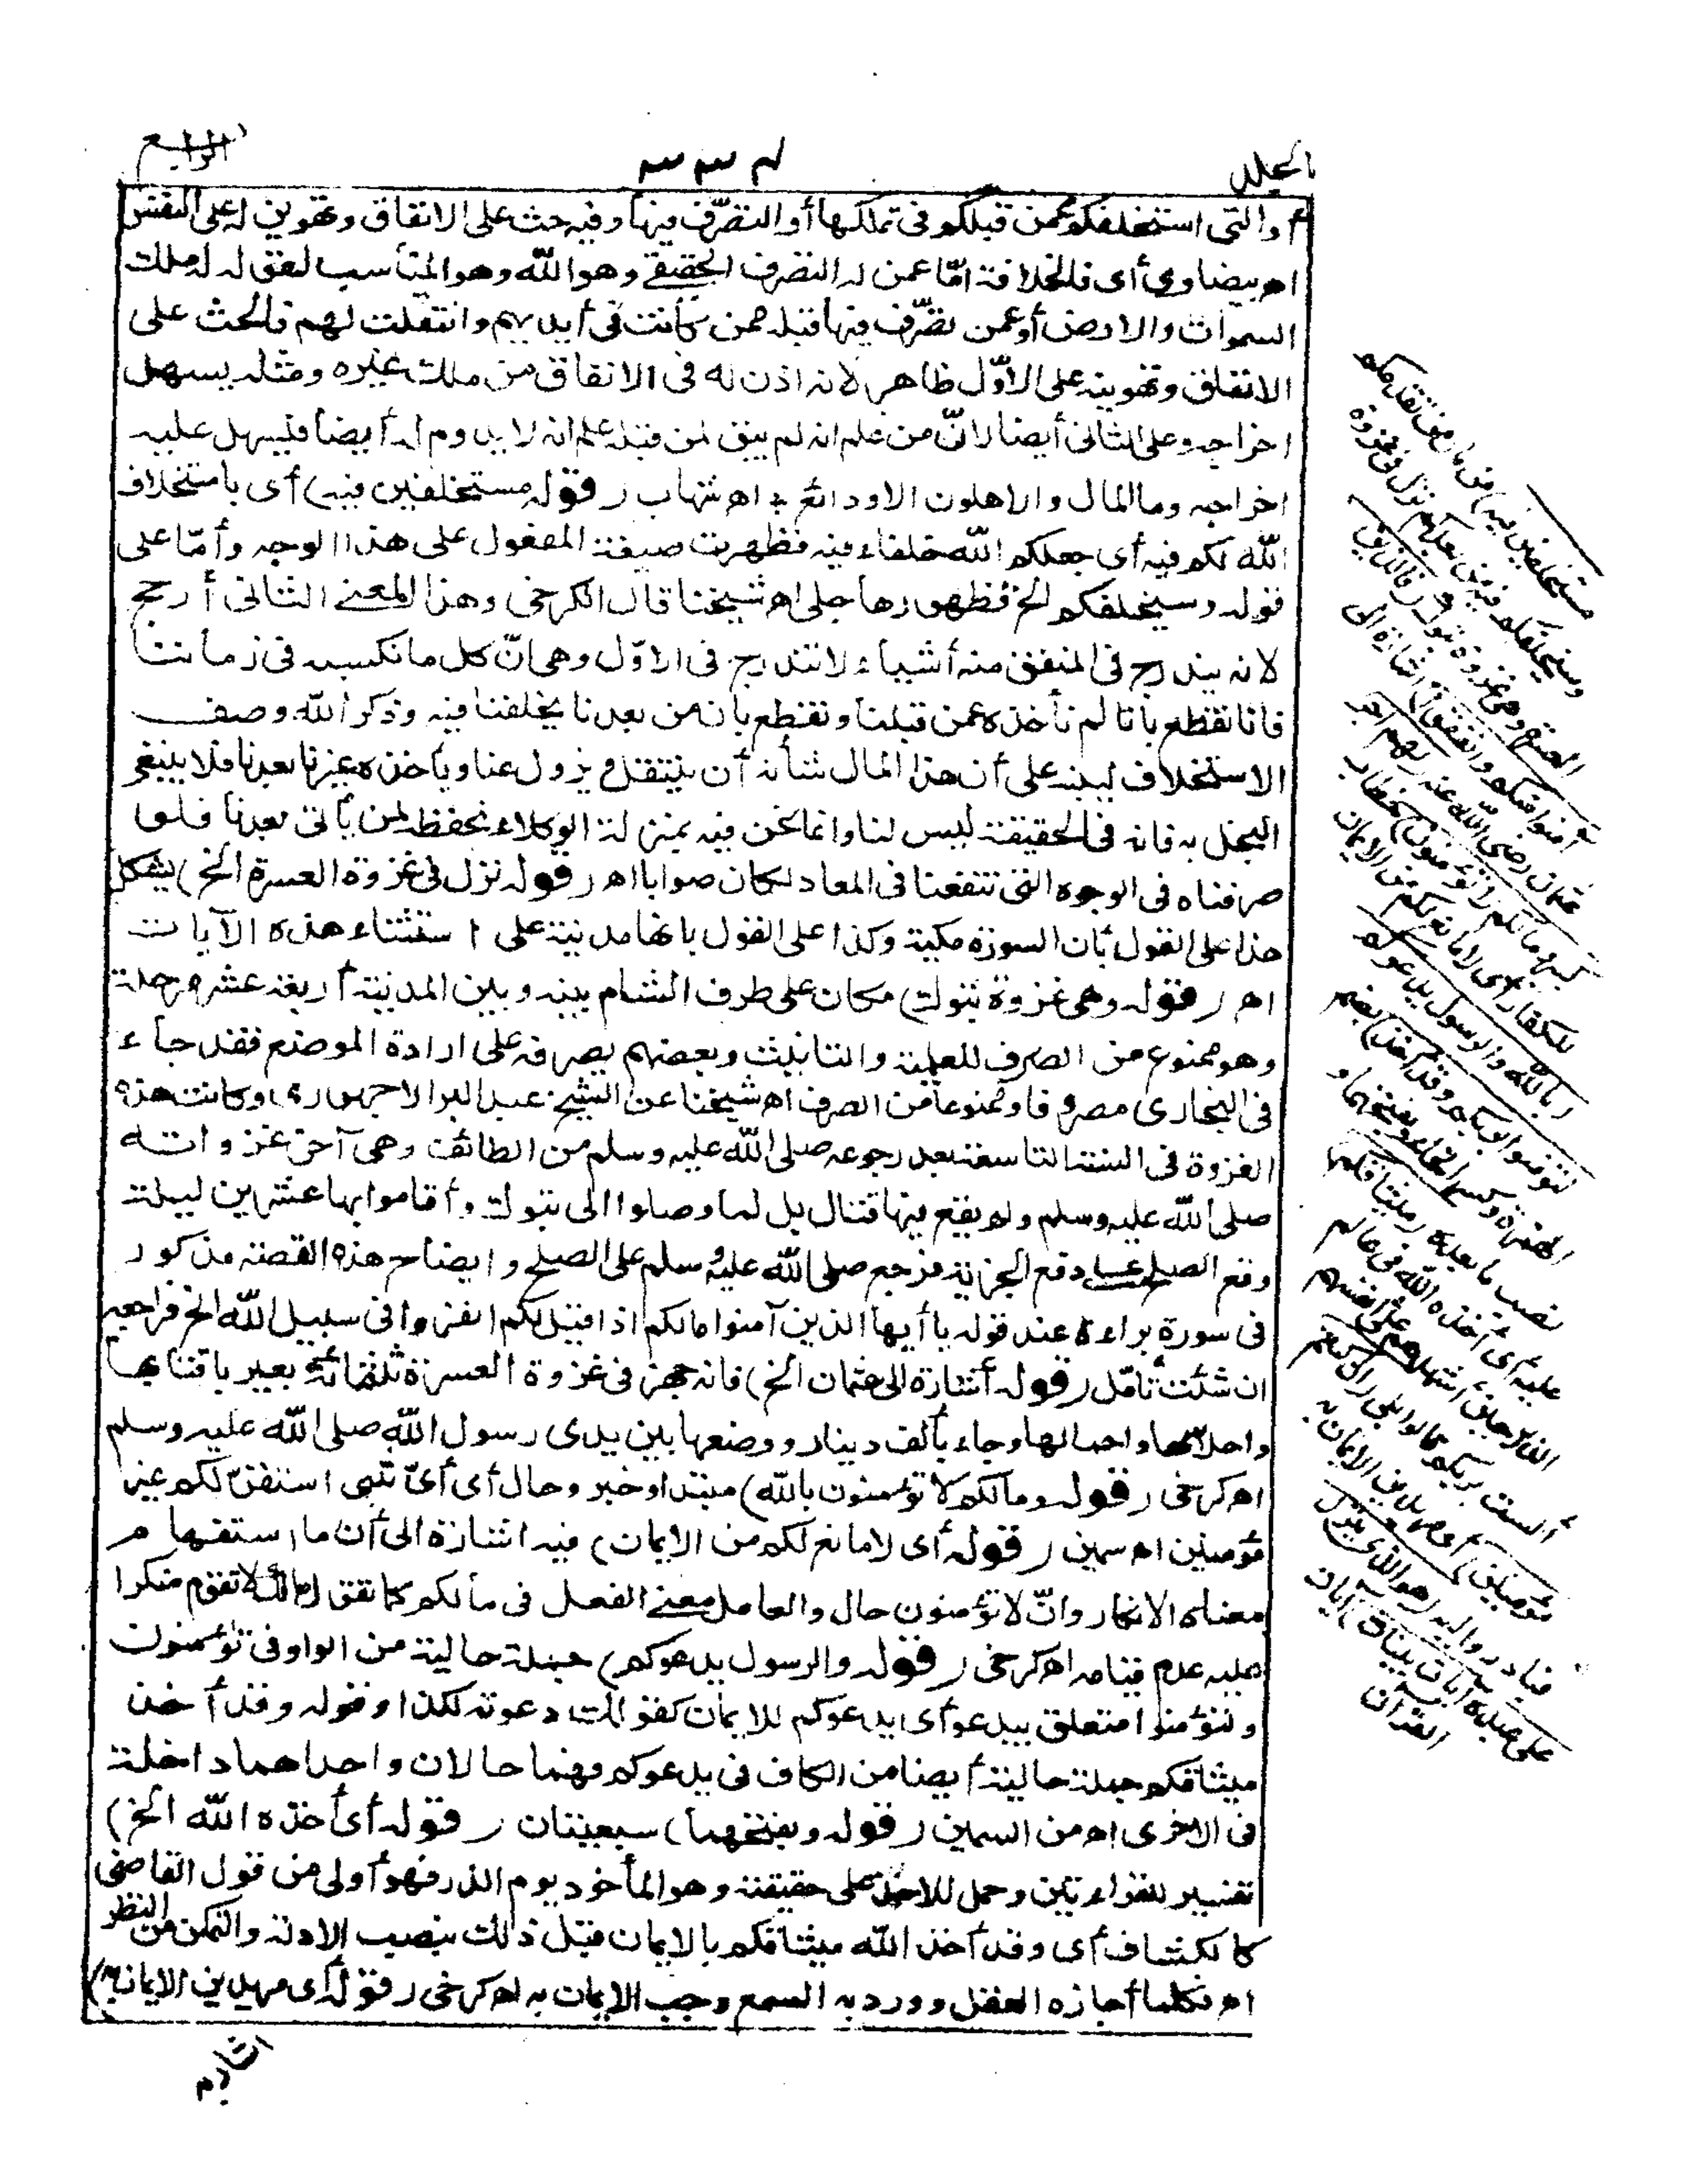 الجلد
٣٣٤
الرابع
أو التي استخلفكم عمن قبلكم في تملكها أو التصرّف فيها وفيه حث على الانفاق وتهوين له على النفس
اه بيضاوي أي فالخلافة امّا عمن له التصرف الحقيقي وهو الله وهو المناسب لقوله له ملك
السموات والارض أو عمن تصّرف فيها قبله ممن كانت في أيديهم وانتقلت لهم فالحث على
الانفاق وتهوينه على الاوّل ظاهر لانه اذن له في الانفاق من ملك غيره ومثله يسهل
اخراجه وعلى الثاني أيضا لانّ من علم انه لم يبق لمن قبله علم انه لا يدوم له أيضا فيسهل عليه
اخراجه وما المال والاهلون الا ودائع ، اه شهاب (قوله مستخلفين فيه) أي باستخلاف
الله لكم فيه أي جعلكم الله خلفاء فيه فظهرت صيغة المفعول على هذا الوجه وأمّا على
قوله وسيخلفكم الخ فظهورها جلي اه شيخنا قال الكرخي وهذا المعنى الثاني أرجح
لانه يندرج في المنفق منه أشياء لا تندرج في الاوّل وهي انّ كل ما نكسبه في زماننا
فانا نقطع بأنا لم نأخذه عمن قبلنا ونقطع بأن من بعدنا يخلفنا فيه وذكر الله وصف
الاستخلاف لينبه على أن هذا المال شأنه أن ينتقل ويزول عنا ويأخذه غيرنا بعدنا فلا ينبغي
البخل به فانه في الحقيقة ليس لنا وانما نحن فيه بمنزلة الوكلاء نحفظه لمن يأتي بعدنا فلو
صرفناه في الوجوه التي تنفعنا في المعاد لكان صوابا اه (قوله نزل في غزوة العسرة الخ) يشكل
هذا على القول بأن السورة مكية وكذا على القول بانها مدنية على استثناء هذه الآيات
اه (قوله وهي غزوة تبوك) مكان على طرف الشام بينه وبين المدينة أربعة عشر مرحلة
وهو ممنوع من الصرف للعلمية والتانيث وبعضهم يصرفه على ارادة الموضع فقد جاء
في البخاري مصروفا وممنوعا من الصرف اه شيخنا عن الشيخ عبد البر الاجهوري وكانت هذه
الغزوة في السنة التاسعة بعد رجوعه صلى الله عليه وسلم من الطائف وهي آخر غزواته
صلى الله عليه وسلم ولم يقع فيها قتال بل لما وصلوا الى تبوك وأقاموا بها عشرين ليلة
وقع الصلح على دفع الجزية فرجع صلى الله عليه وسلم على الصلح وايضاح هذه القصة مذكور
في سورة براءة عند قوله ياأيها الذين آمنوا مالكم اذا قيل لكم انفروا في سبيل الله الخ فراجعه
ان شئت تأمّل (قوله أشارة الى عثمان الخ) فانه جهز في غزوة العسرة ثلثمائة بعير باقتابها
واحلاسها واحمالها وجاء بألف دينار ووضعها بين يدي رسول الله صلى الله عليه وسلم
اه كرخي (قوله ومالكم لا تؤمنون بالله) مبتدا وخبر وحال أي أيّ شيء استقرّ لكم غير
مؤمنين اه سمين (قوله أي لا مانع لكم من الايمان) فيه اشارة الى أن ما استفهام
معناه الانكار وانّ لا تؤمنون حال والعامل معنى الفعل في مالكم كما تقول مالك لا تقوم منكرا
عليه عدم قيامه اه كرخي (قوله والرسول يدعوكم) جملة حالية من الواو في تؤمنون
ولتؤمنوا متعلق بيدعو أي يدعوكم للايمان كقولك دعوته لكذا وقوله وقد أخذ
ميثاقكم جملة حالية أيضا من الكاف في يدعوكم فهما حالان واحداهما داخلة
في الاخرى اه من السمين (قوله وبفتحهما) سبعيتان (قوله أي أخذه الله الخ)
تفسير للقراءتين وحمل للاخذ على حقيقته وهو المأخوذ يوم الذر فهو أولى من قول القاضي
كالكشاف أي وقد أخذ الله ميثاقكم بالايمان قبل ذلك بنصب الادلة والتمكن من النظر
اه فكلما أجازه العقل وورد به السمع وجب الايمان به اه كرخي (قوله أي مريدين الايمان به)
مستخلفين فيه) من مال من تقدمكم
وسيخلفكم فيه من بعدكم نزل في غزوة
العسرة وهي غزوة تبوك (فالذين
آمنوا منكم وانفقوا) اشارة الى
عثمان رضي الله عنه (لهم اجر
كبير ومالكم لا تؤمنون) خطاب
للكفار أي لا مانع لكم من الايمان
(بالله والرسول يدعوكم
لتؤمنوا بربكم وقد أخذ) بضم
الهمزة وكسر الخاء وبفتحهما و
نصب ما بعده (ميثاقكم)
عليه أي أخذه الله في عالم
الذر حين أشهدهم على أنفسهم
ألست بربكم قالوا بلى (ان كنتم
مؤمنين) أي مريدين الايمان به
فبادروا اليه (هو الذي ينزل
على عبده آيات بينات) آيات
القرآن